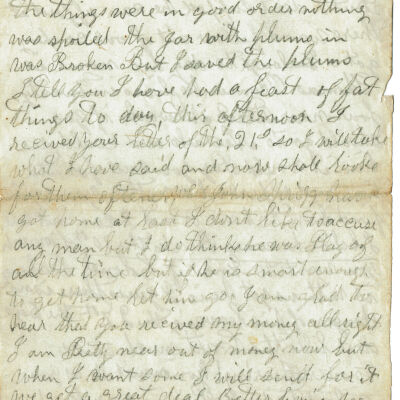 the things were in good order nothing
was spoiled the Jar with plums in
was Broken But I saved the plums
I tell you I have had a feast of fat
things to day this afternoon I
received your letter of the 21st so I will take
what I have said and now shall looke
for them
got home at last I dont like to accuse
any man but I do think he was Playing of
all the time but if he is smart enough
to get home let him go I am glad to
hear that you recived my money all right
I am Pretty near out of money now but
when I want some I will send for it
we get a great deal Better living